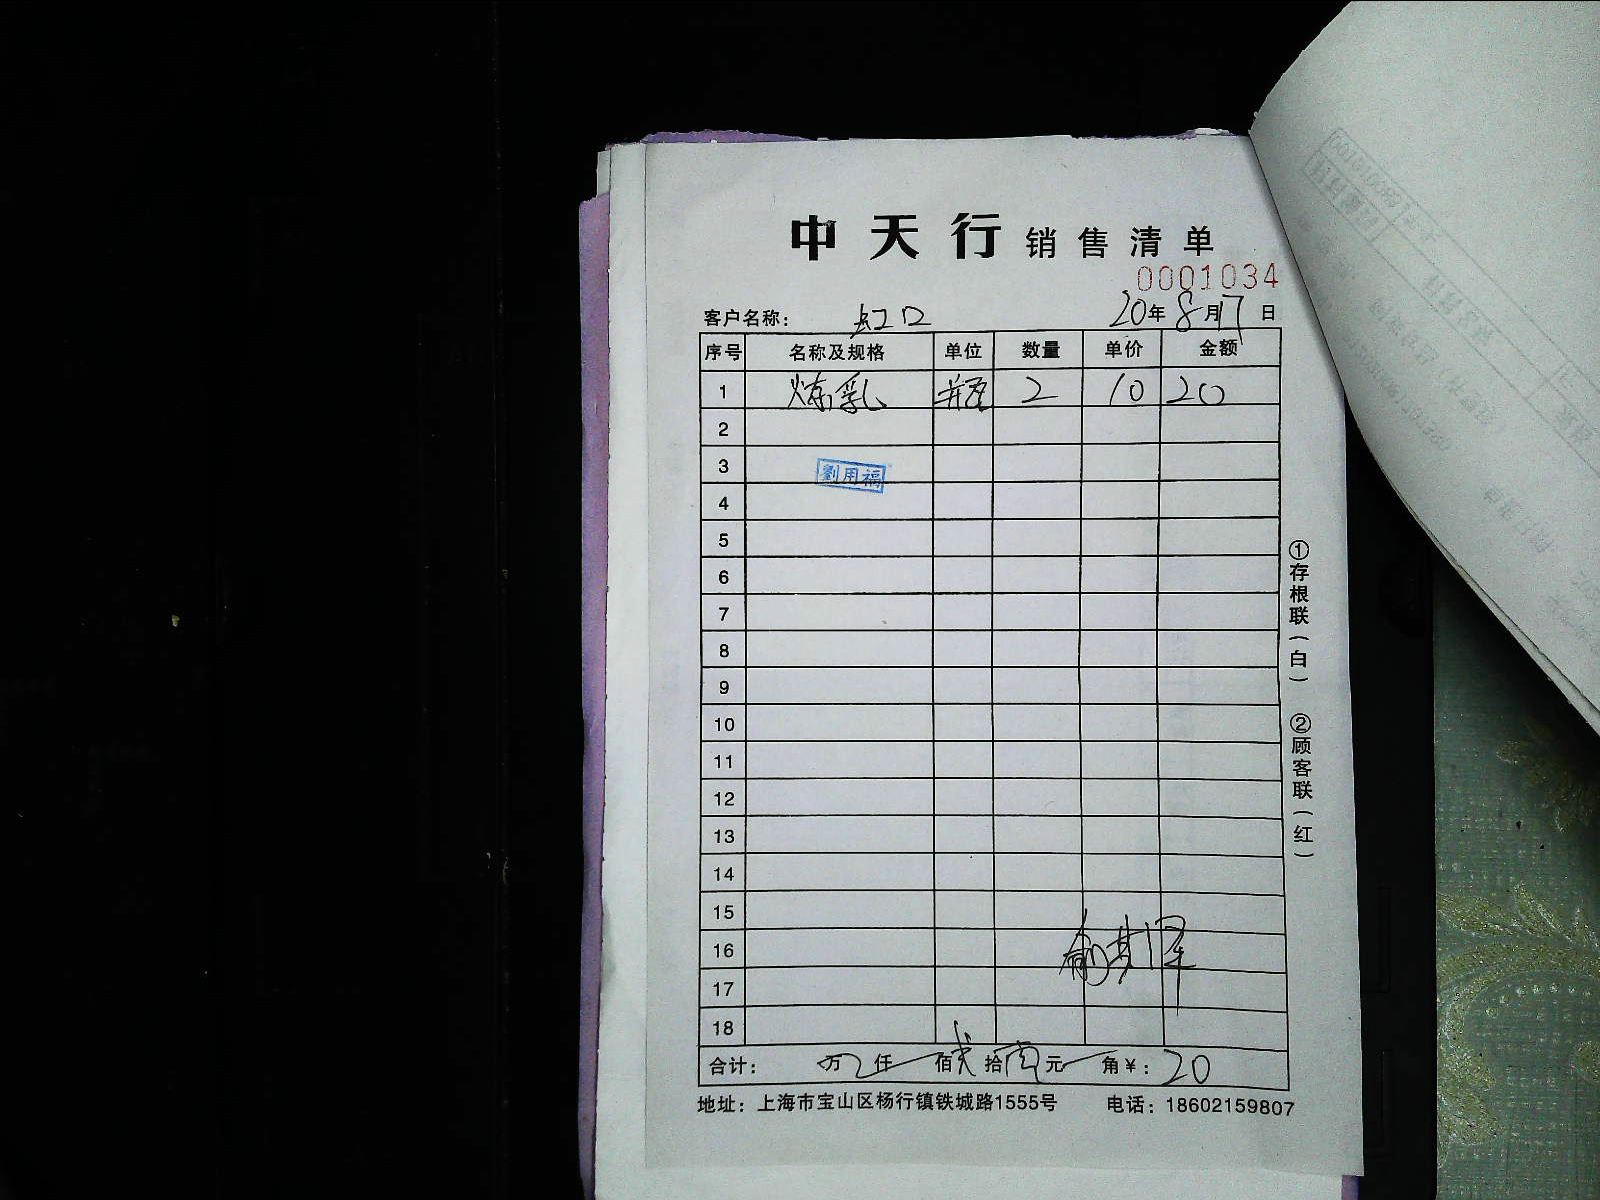 中天行 销售清单
0001034
客户名称： 虹口 20年8月17日
序号 名称及规格 单位 数量 单价 金额
1 炼乳 瓶 2 10 20
2
3
劉用福
4
5
6
7
8
9
10
11
12
13
14
15
16
17
18
合计： 万 仟 佰 弍 拾 元 角 ¥：20
地址：上海市宝山区杨行镇铁城路1555号 电话：18602159807
①存根联（白） ②顾客联（红）